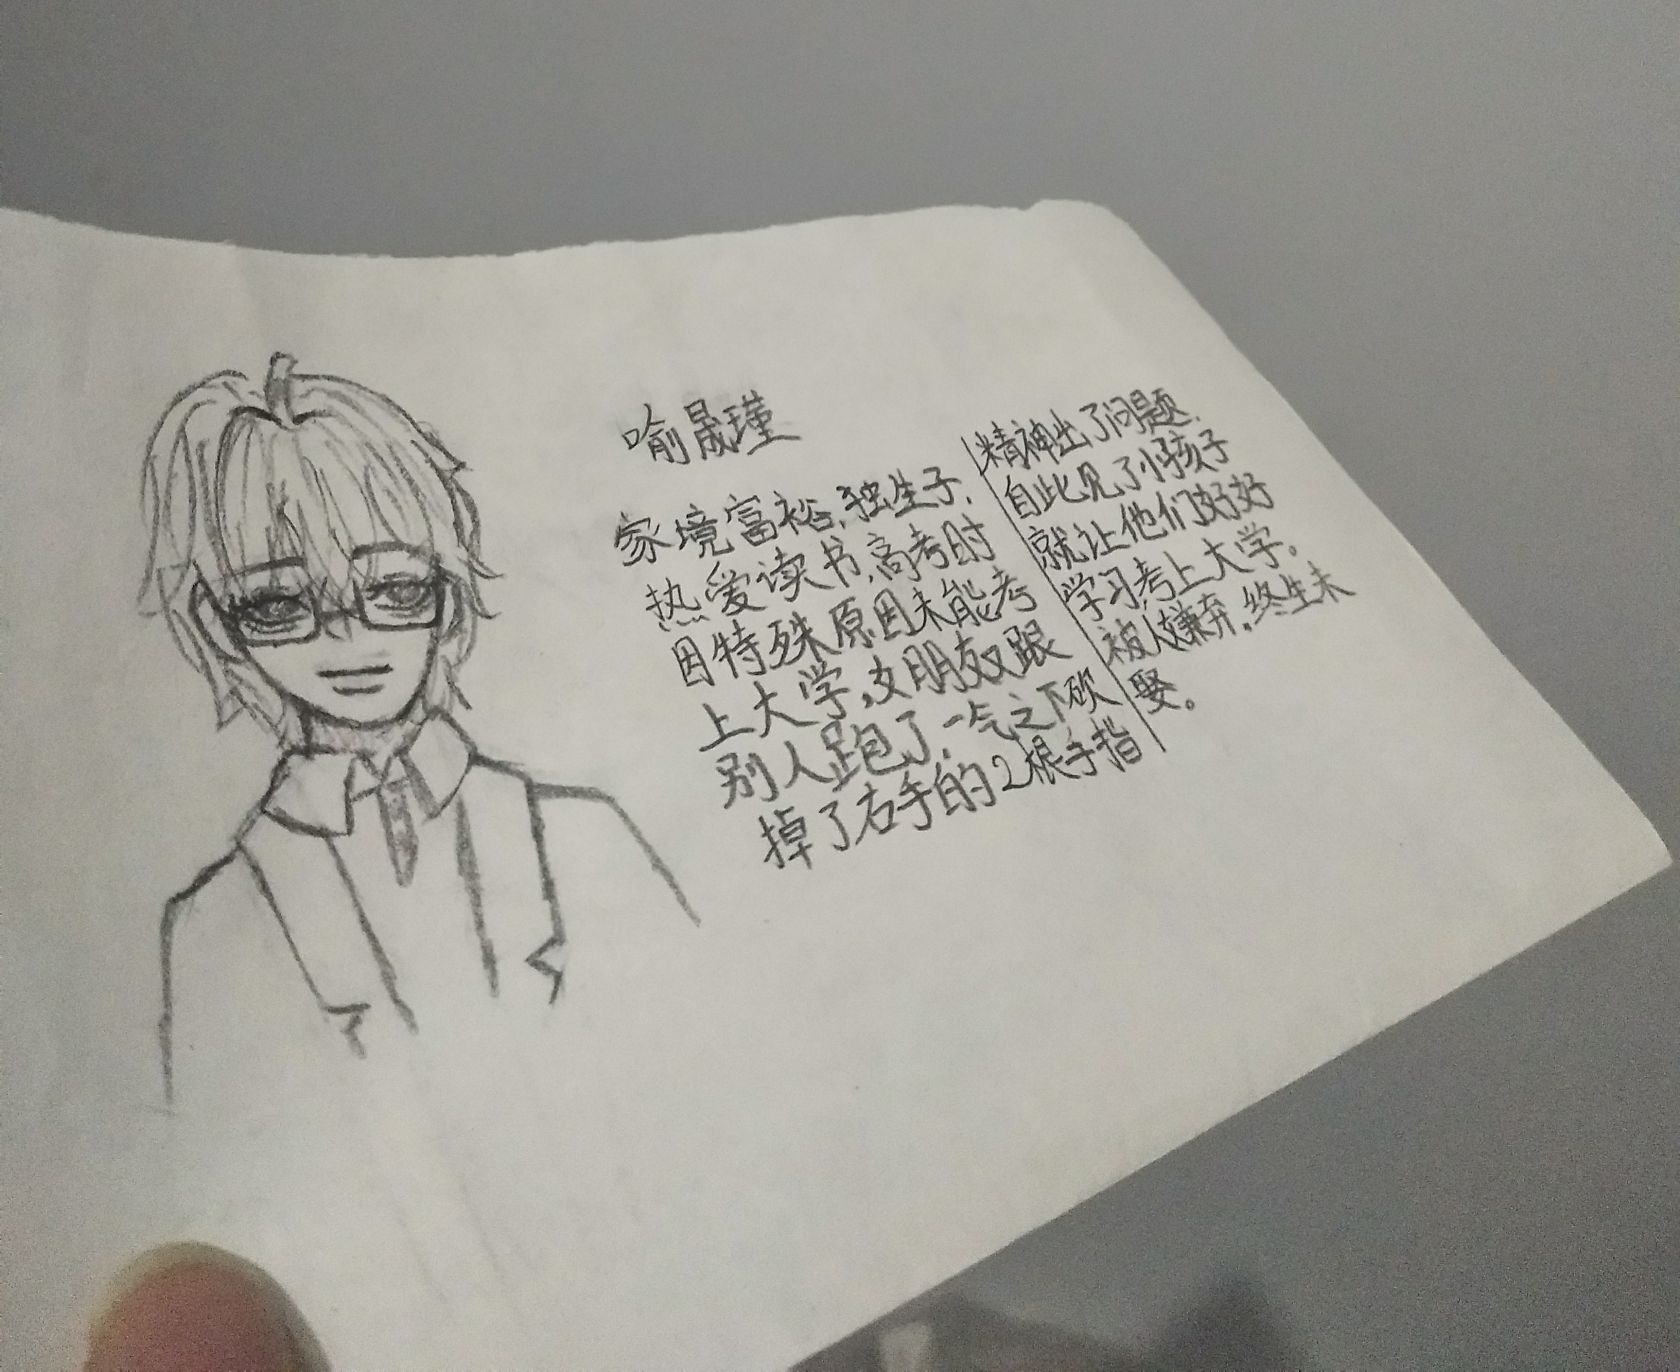 喻晟瑾
家境富裕，独生子，
热爱读书，高考时
因特殊原因未能考
上大学，女朋友跟
别人跑了，一气之下砍
掉了右手的2根手指
精神出了问题，
自此见了小孩子
就让他们好好
学习考上大学。
被人嫌弃，终生未
娶。